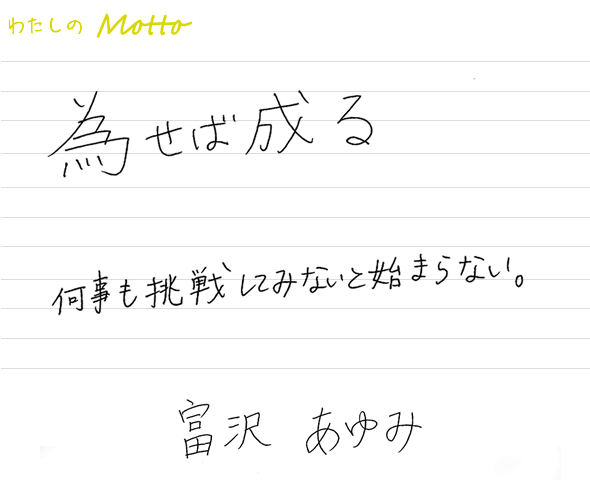 わたしの Motto
為せば成る
何事も挑戦してみないと始まらない。
富沢 あゆみ